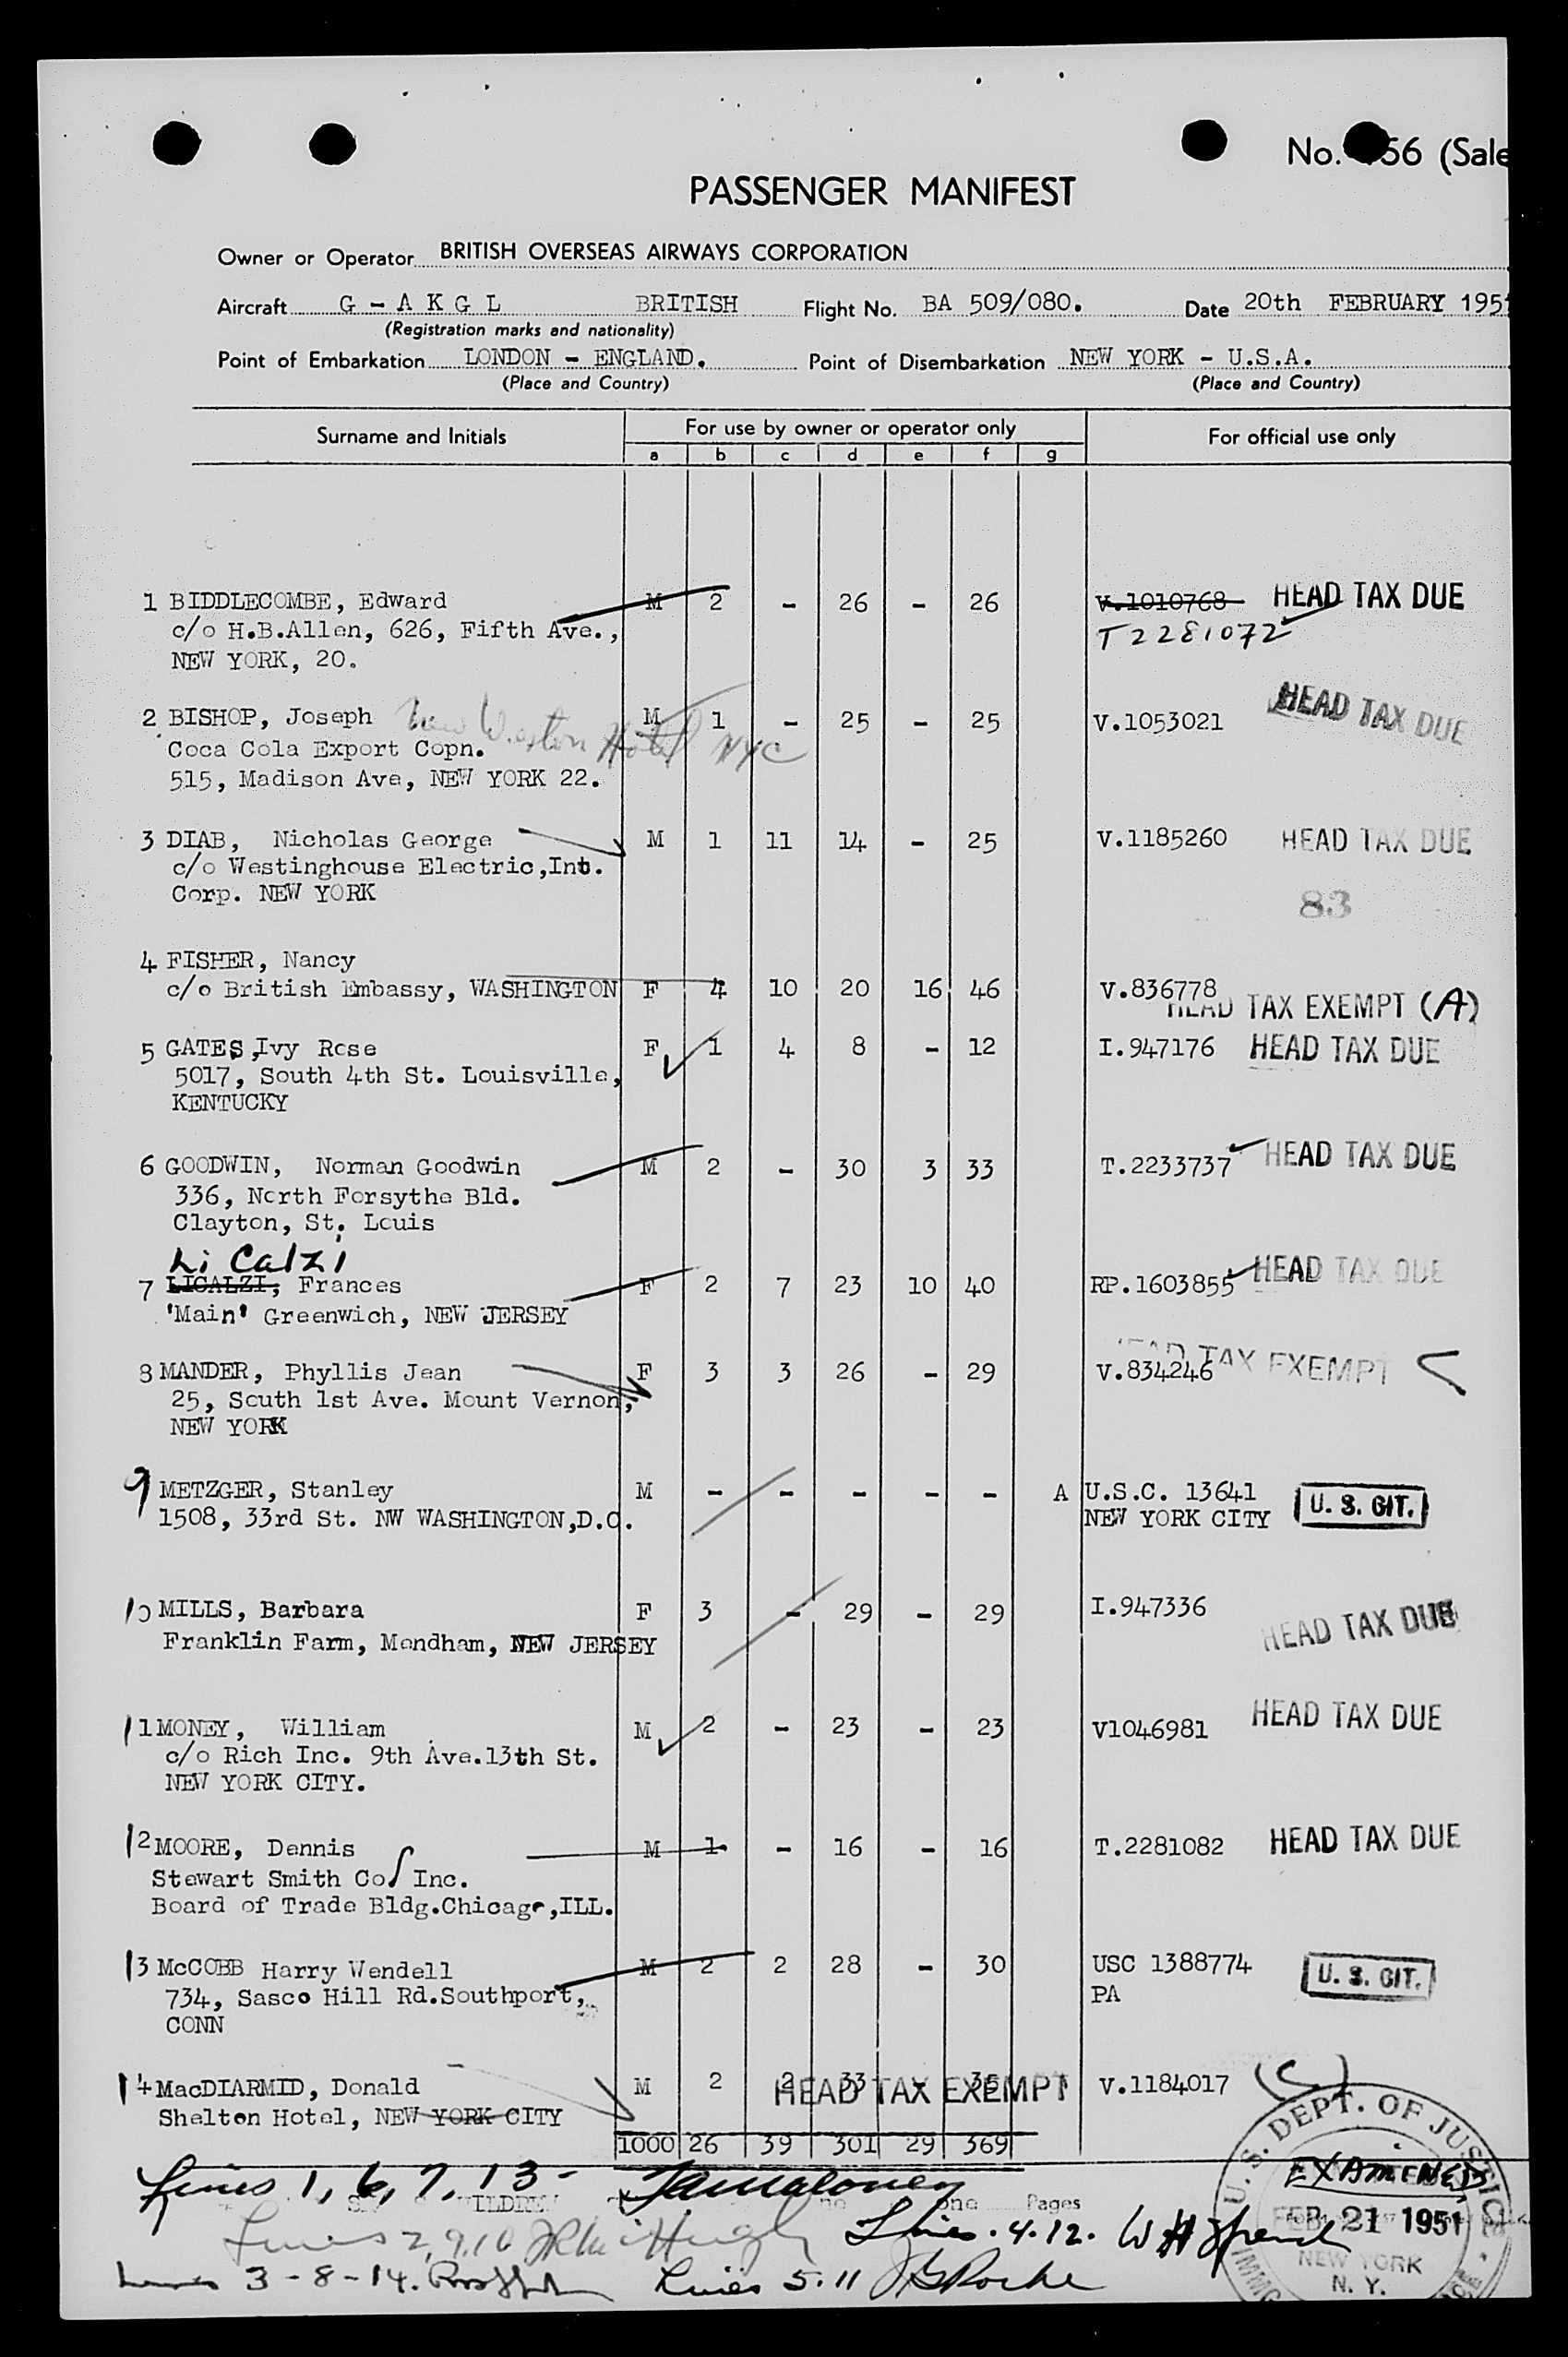 No. 56 (Sale
PASSENGER MANIFEST
Owner or Operator BRITISH OVERSEAS AIRWAYS CORPORATION
Aircraft G - A K G L BRITISH Flight No. BA 509/080. Date 20th FEBRUARY 1951
(Registration marks and nationality)
Point of Embarkation LONDON - ENGLAND. Point of Disembarkation NEW YORK - U.S.A.
(Place and Country) (Place and Country)
Surname and Initials For use by owner or operator only For official use only
a b c d e f g
1 BIDDLECOMBE, Edward M 2 - 26 - 26 V.1010768 HEAD TAX DUE
c/o H.B.Allen, 626, Fifth Ave., T2281072
NEW YORK, 20.
2 BISHOP, Joseph New Weston Hotel NYC M 1 - 25 - 25 V.1053021 HEAD TAX DUE
Coca Cola Export Copn.
515, Madison Ave, NEW YORK 22.
3 DIAB, Nicholas George M 1 11 14 - 25 V.1185260 HEAD TAX DUE
c/o Westinghouse Electric,Int.
Corp. NEW YORK 83
4 FISHER, Nancy
c/o British Embassy, WASHINGTON F 4 10 20 16 46 V.836778
HEAD TAX EXEMPT (A)
5 GATES,Ivy Rose F 1 4 8 - 12 I.947176 HEAD TAX DUE
5017, South 4th St. Louisville,
KENTUCKY
6 GOODWIN, Norman Goodwin M 2 - 30 3 33 T.2233737 HEAD TAX DUE
336, North Forsythe Bld.
Clayton, St. Louis
Li Calzi
7 LICALZI, Frances F 2 7 23 10 40 RP.1603855 HEAD TAX DUE
'Main' Greenwich, NEW JERSEY
8 MANDER, Phyllis Jean F 3 3 26 - 29 V.834246 HEAD TAX EXEMPT
25, South 1st Ave. Mount Vernon,
NEW YORK
9 METZGER, Stanley M - - - - - A U.S.C. 13641 U. S. CIT.
1508, 33rd St. NW WASHINGTON,D.C. NEW YORK CITY
10 MILLS, Barbara F 3 - 29 - 29 I.947336 HEAD TAX DUE
Franklin Farm, Mendham, NEW JERSEY
11 MONEY, William M 2 - 23 - 23 V1046981 HEAD TAX DUE
c/o Rich Inc. 9th Ave.13th St.
NEW YORK CITY.
12 MOORE, Dennis M 1 - 16 - 16 T.2281082 HEAD TAX DUE
Stewart Smith Co/ Inc.
Board of Trade Bldg.Chicago,ILL.
13 McCOBB Harry Wendell M 2 2 28 - 30 USC 1388774 U. S. CIT.
734, Sasco Hill Rd.Southport, PA
CONN
14 MacDIARMID, Donald M 2 2 33 - 35 HEAD TAX EXEMPT V.1184017 (C)
Shelton Hotel, NEW YORK CITY
1000 26 39 301 29 369
Lines 1, 6, 7, 13 - Pages
Lines 2, 9, 10 Lines. 4. 12.
Lines 3 - 8 - 14. Lines 5. 11 JG Roche
U.S. DEPT. OF JUSTICE
EXAMINED
FEB 21 1951
NEW YORK
N. Y.